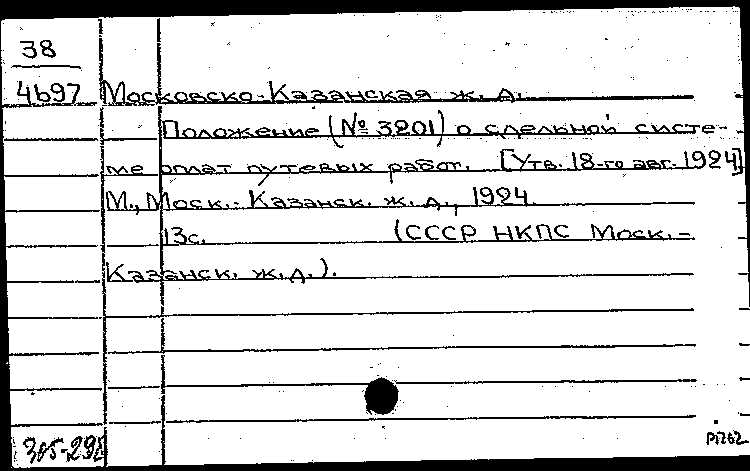 38
4697 Московско-Казанская ж. д.
Положение (№ 3201) о сдельной систе-
ме оплат путевых работ. [Утв. 18-го авг. 1924]
М., Моск.-Казанск. ж. д., 1924.
13с. (СССР НКПС Моск.-
Казанск. ж.д.).